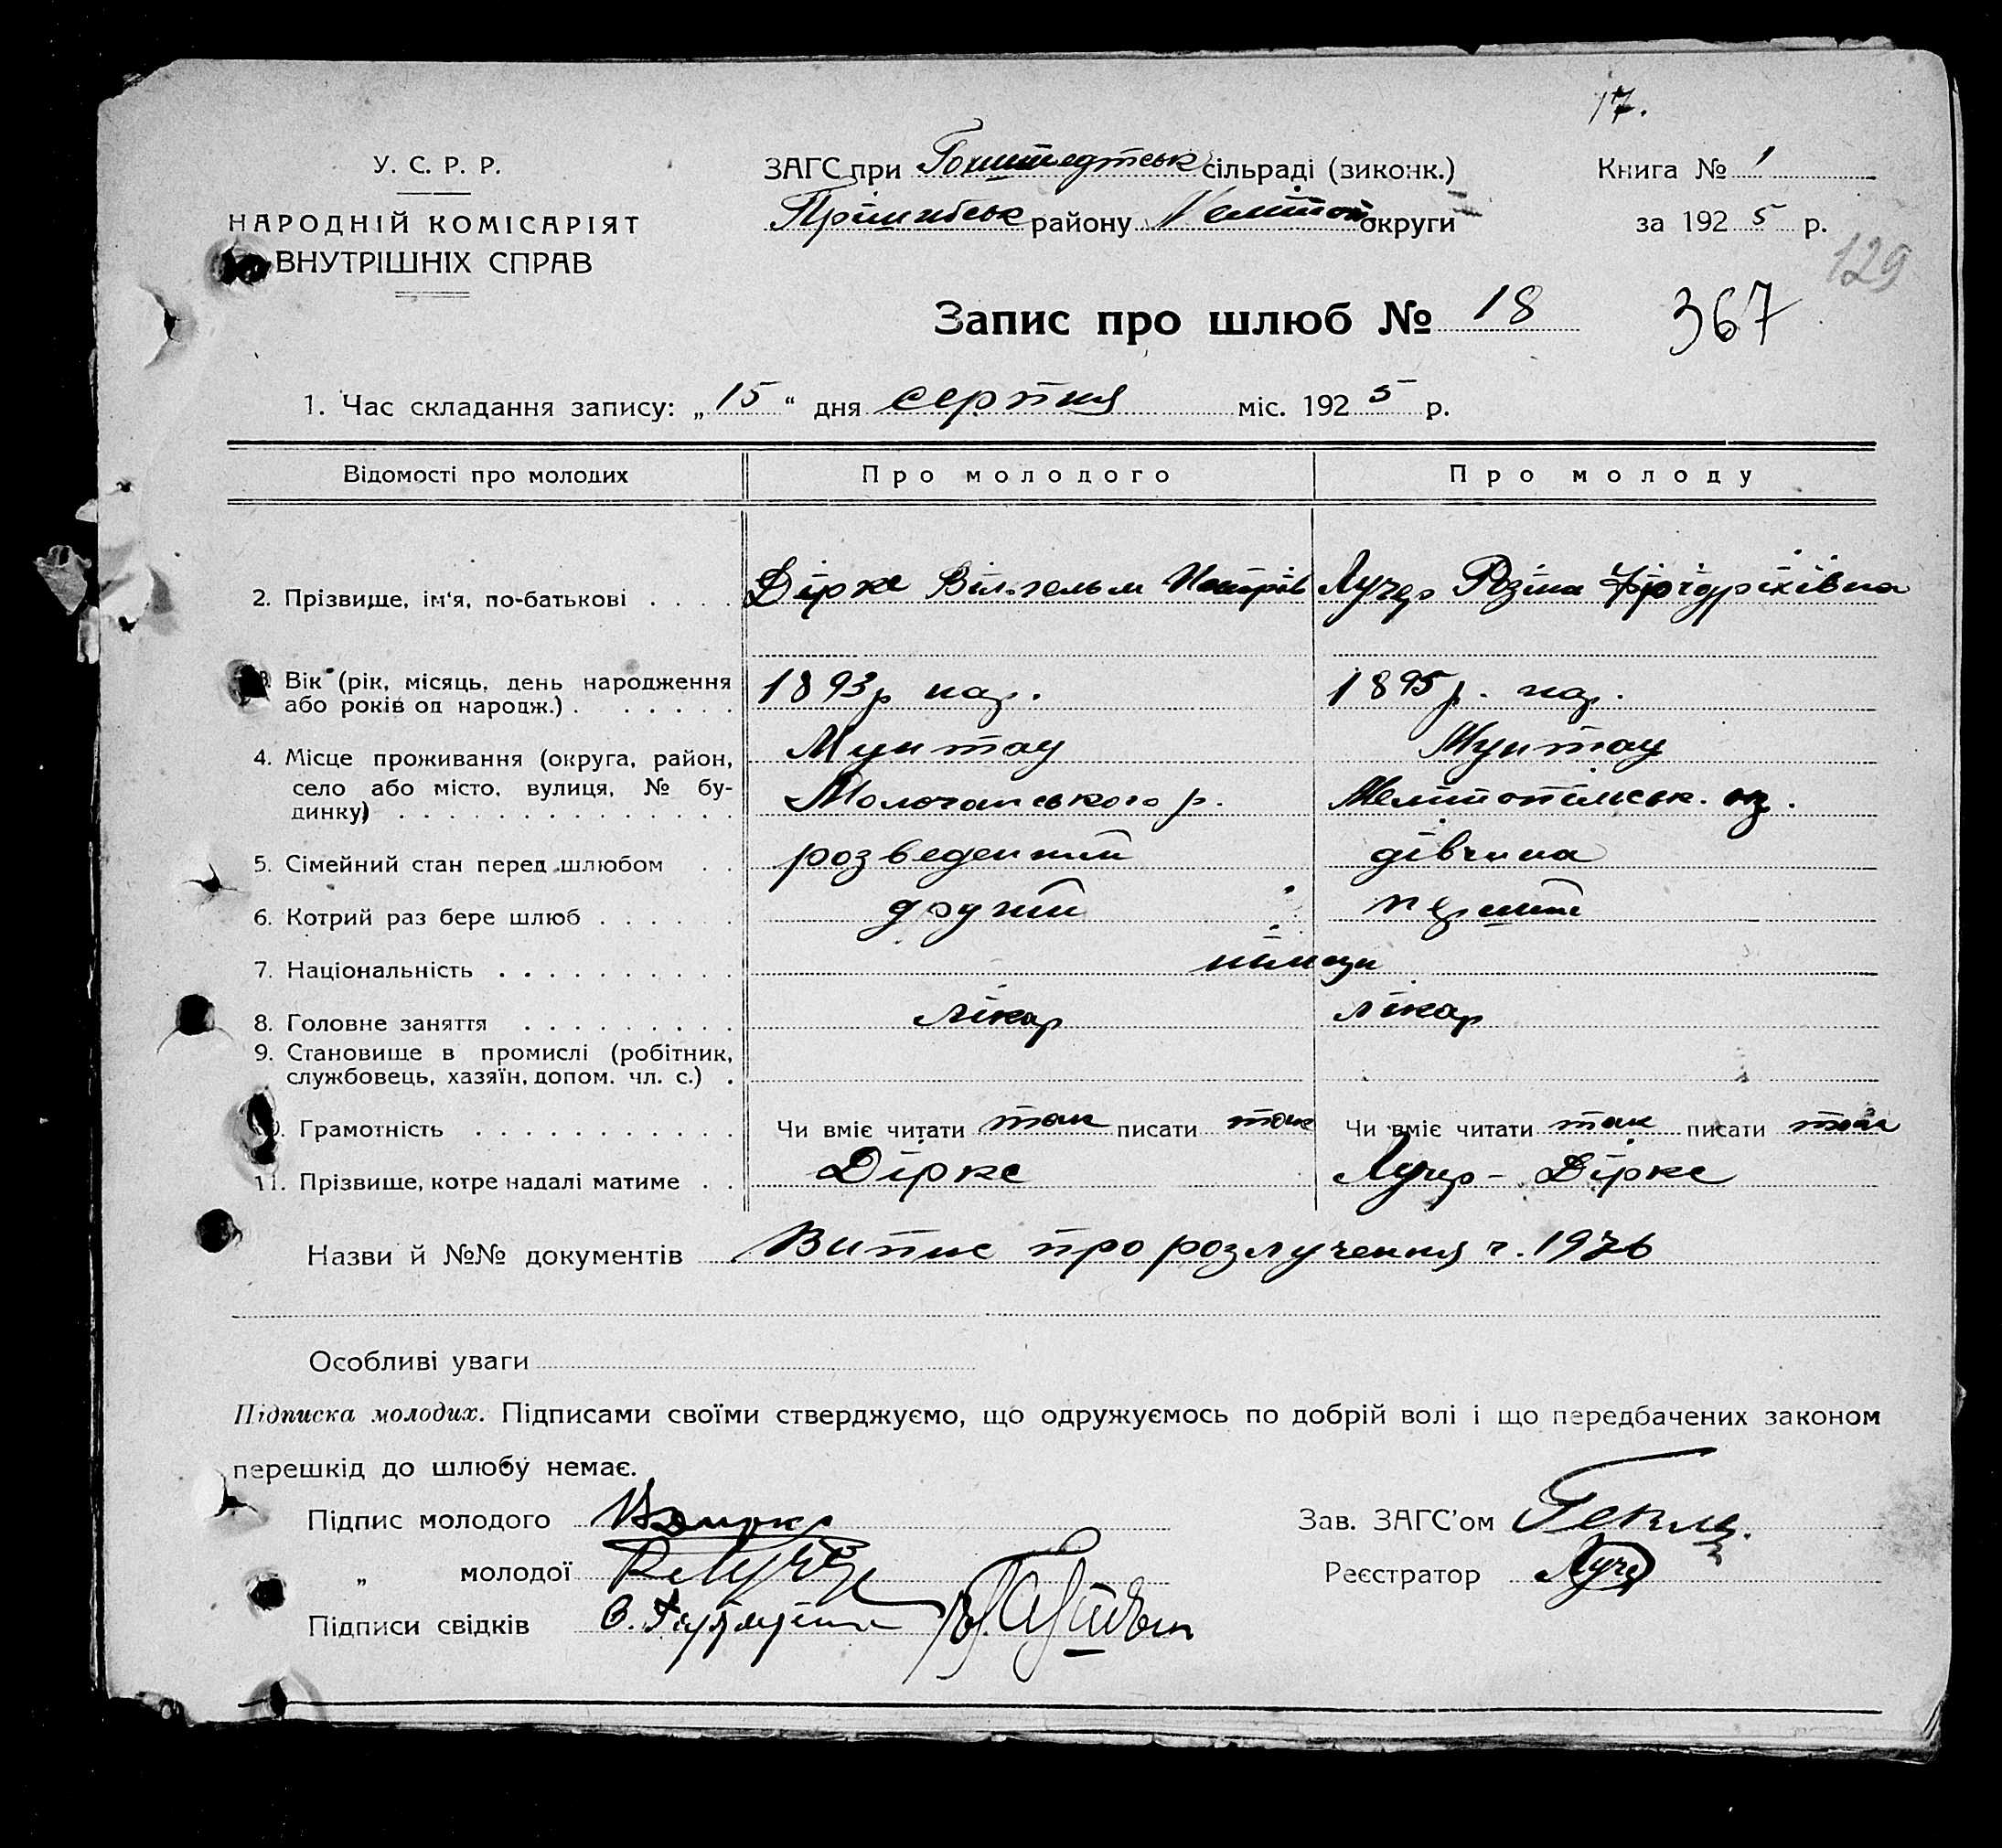 17.
У. С. Р. Р. ЗАГС при Гохштедтськ сільраді (зиконк.) Книга № 1
НАРОДНІЙ КОМІСАРІЯТ Пришибськ району Мелітоп округи за 1925 р.
ВНУТРІШНІХ СПРАВ 129
Запис про шлюб № 18 367
1. Час складання запису: „15“ дня серпня міс. 1925 р.
Відомості про молодих Про молодого Про молоду
2. Прізвище, ім'я, по-батькові Дірке Вільгельм Петрів Лучер Розіна Фрідріхівна
3. Вік (рік, місяць, день народження 1893р нар. 1895р. нар.
або років од народж.)
4. Місце проживання (округа, район, Мунтау Мунтау
село або місто, вулиця, № бу- Молочанського р. Мелітопільськ. окр.
динку)
5. Сімейний стан перед шлюбом розведений дівчина
6. Котрий раз бере шлюб другий перший
7. Національність німци
8. Головне заняття лікар лікар
9. Становище в промислі (робітник,
службовець, хазяїн, допом. чл. с.)
10. Грамотність Чи вміє читати так писати так Чи вміє читати так писати так
11. Прізвище, котре надалі матиме Дірке Лучер - Дірке
Назви й №№ документів Випис про розлучення ч. 1976
Особливі уваги
Підписка молодих. Підписами своїми стверджуємо, що одружуємось по добрій волі і що передбачених законом
перешкід до шлюбу немає.
Підпис молодого Зав. ЗАГС'ом
„ молодої Реєстратор
Підписи свідків